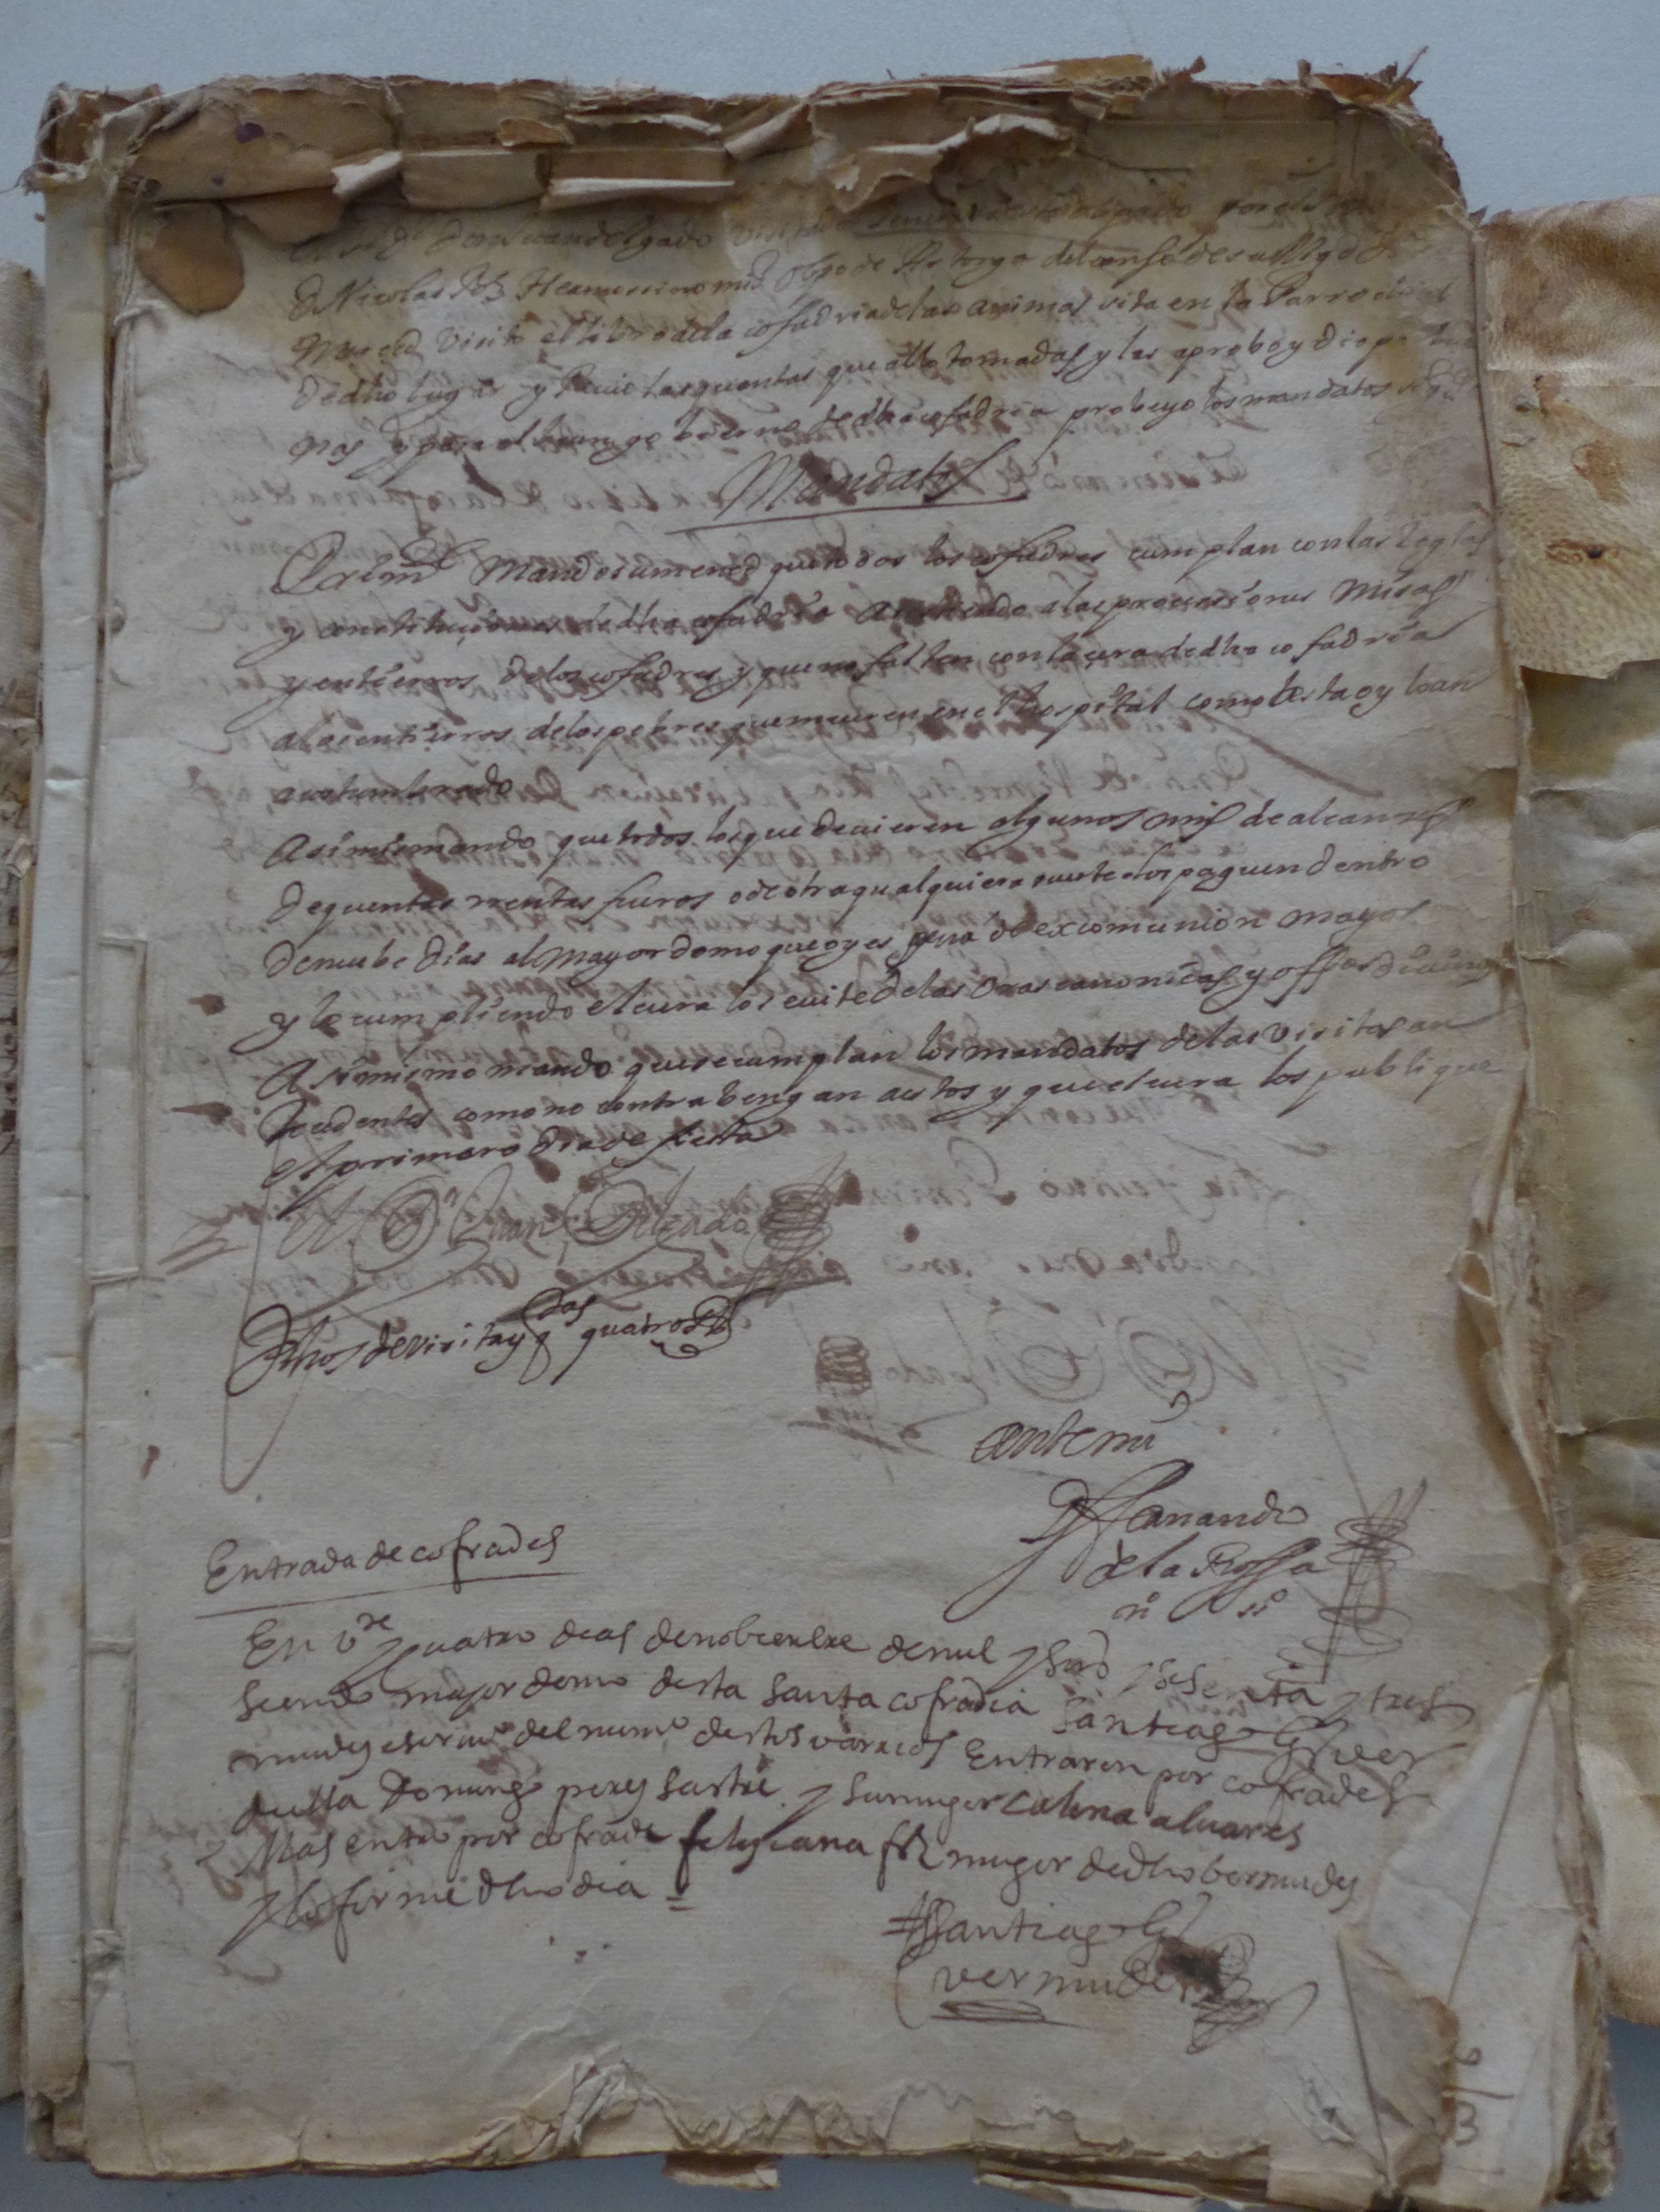 Don Juan delgado Visitador General deste obispado por el
D Nicolas Rs Hermossino mi s.r Obpo de Astorga del conso de su Mgd
Merced Visito el libro de la cofadria de las animas sita en la Parrochial
de dho lugar y Reuio las quentas que allo tomadas y las aprobo y dio por
nas y para el buen gobierno de dha cofadria probeyo los mandatos sigtes
Mandatos
Primte Mando su merced que todos los cofadres cumplan con las Reglas
y constituciones de dha cofadria asistiendo a las processiones Misas
y entierros de los cofadres y que no falten con la çera de dha cofadria
a los entierros de los pobres que mueren en el hospital como asta oy lo an
acostumbrado
Asimismo mando que todos los que deuieren algunos mrs de alcances
de quentas rrentas fueros o de otra qualquiera suerte los paguen dentro
de nuebe dias al mayordomo que oy es pena de excomunion mayor
y lo cumpliendo el cura los euite de las Oras canonicas y offos diuinos
Asimismo mando que se cumplan los mandatos de las visitas an
tecedentes como no contrabengan a estos y que el cura los publique
el primero dia de fiesta
Dn Juan Delgado
Dhos de visita y qdas quatro Rs
ante mi
D Fernando
de la Rossa
no so
Entrada de cofrades
En vre quatro dias de nobienbre de mil y ss.o y sesenta y tres
siendo mayordomo desta santa cofradia Santiago Gs ver
mudez escriuo del numo destos varrios Entraron por cofrades
della Domingo perez sastre y su muger Catalina aluares
Mas entro por cofrade feliçiana frz muger de dho bermudez
y lo firme dho dia =
Santiago Gs
vermudez